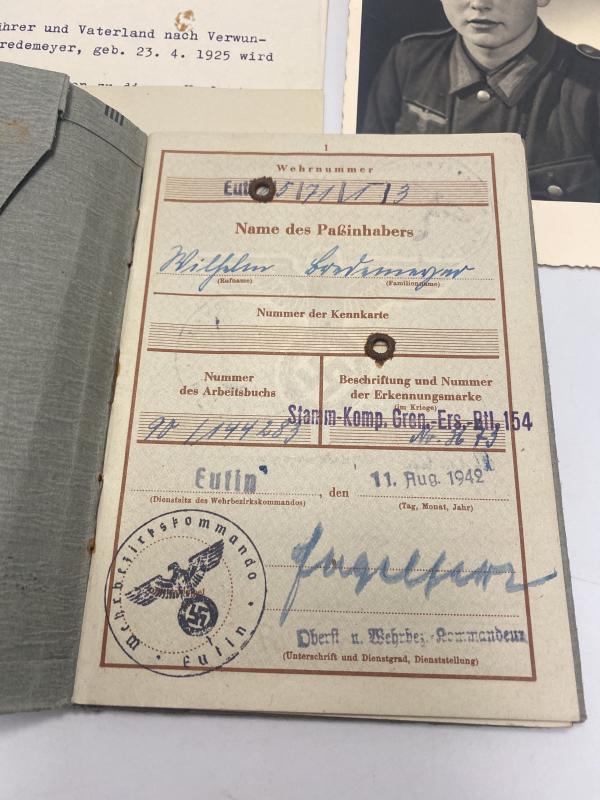 ührer und Vaterland nach Verwun-
redemeyer, geb. 23. 4. 1925 wird
1
Wehrnummer
Eutin 25/71/1/3
Name des Paßinhabers
Wilhelm Bredemeyer
(Rufname) (Familienname)
Nummer der Kennkarte
Nummer
des Arbeitsbuchs
90/144283
Beschriftung und Nummer
der Erkennungsmarke
(im Kriege)
Stamm-Komp. Gren.-Ers.-Btl. 154
Nr. 3673
Eutin, den 11. Aug. 1942
(Dienstsitz des Wehrbezirkskommandos) (Tag, Monat, Jahr)
Wehrbezirkskommando
Eutin
Oberst u. Wehrbez.-Kommandeur
(Unterschrift und Dienstgrad, Dienststellung)